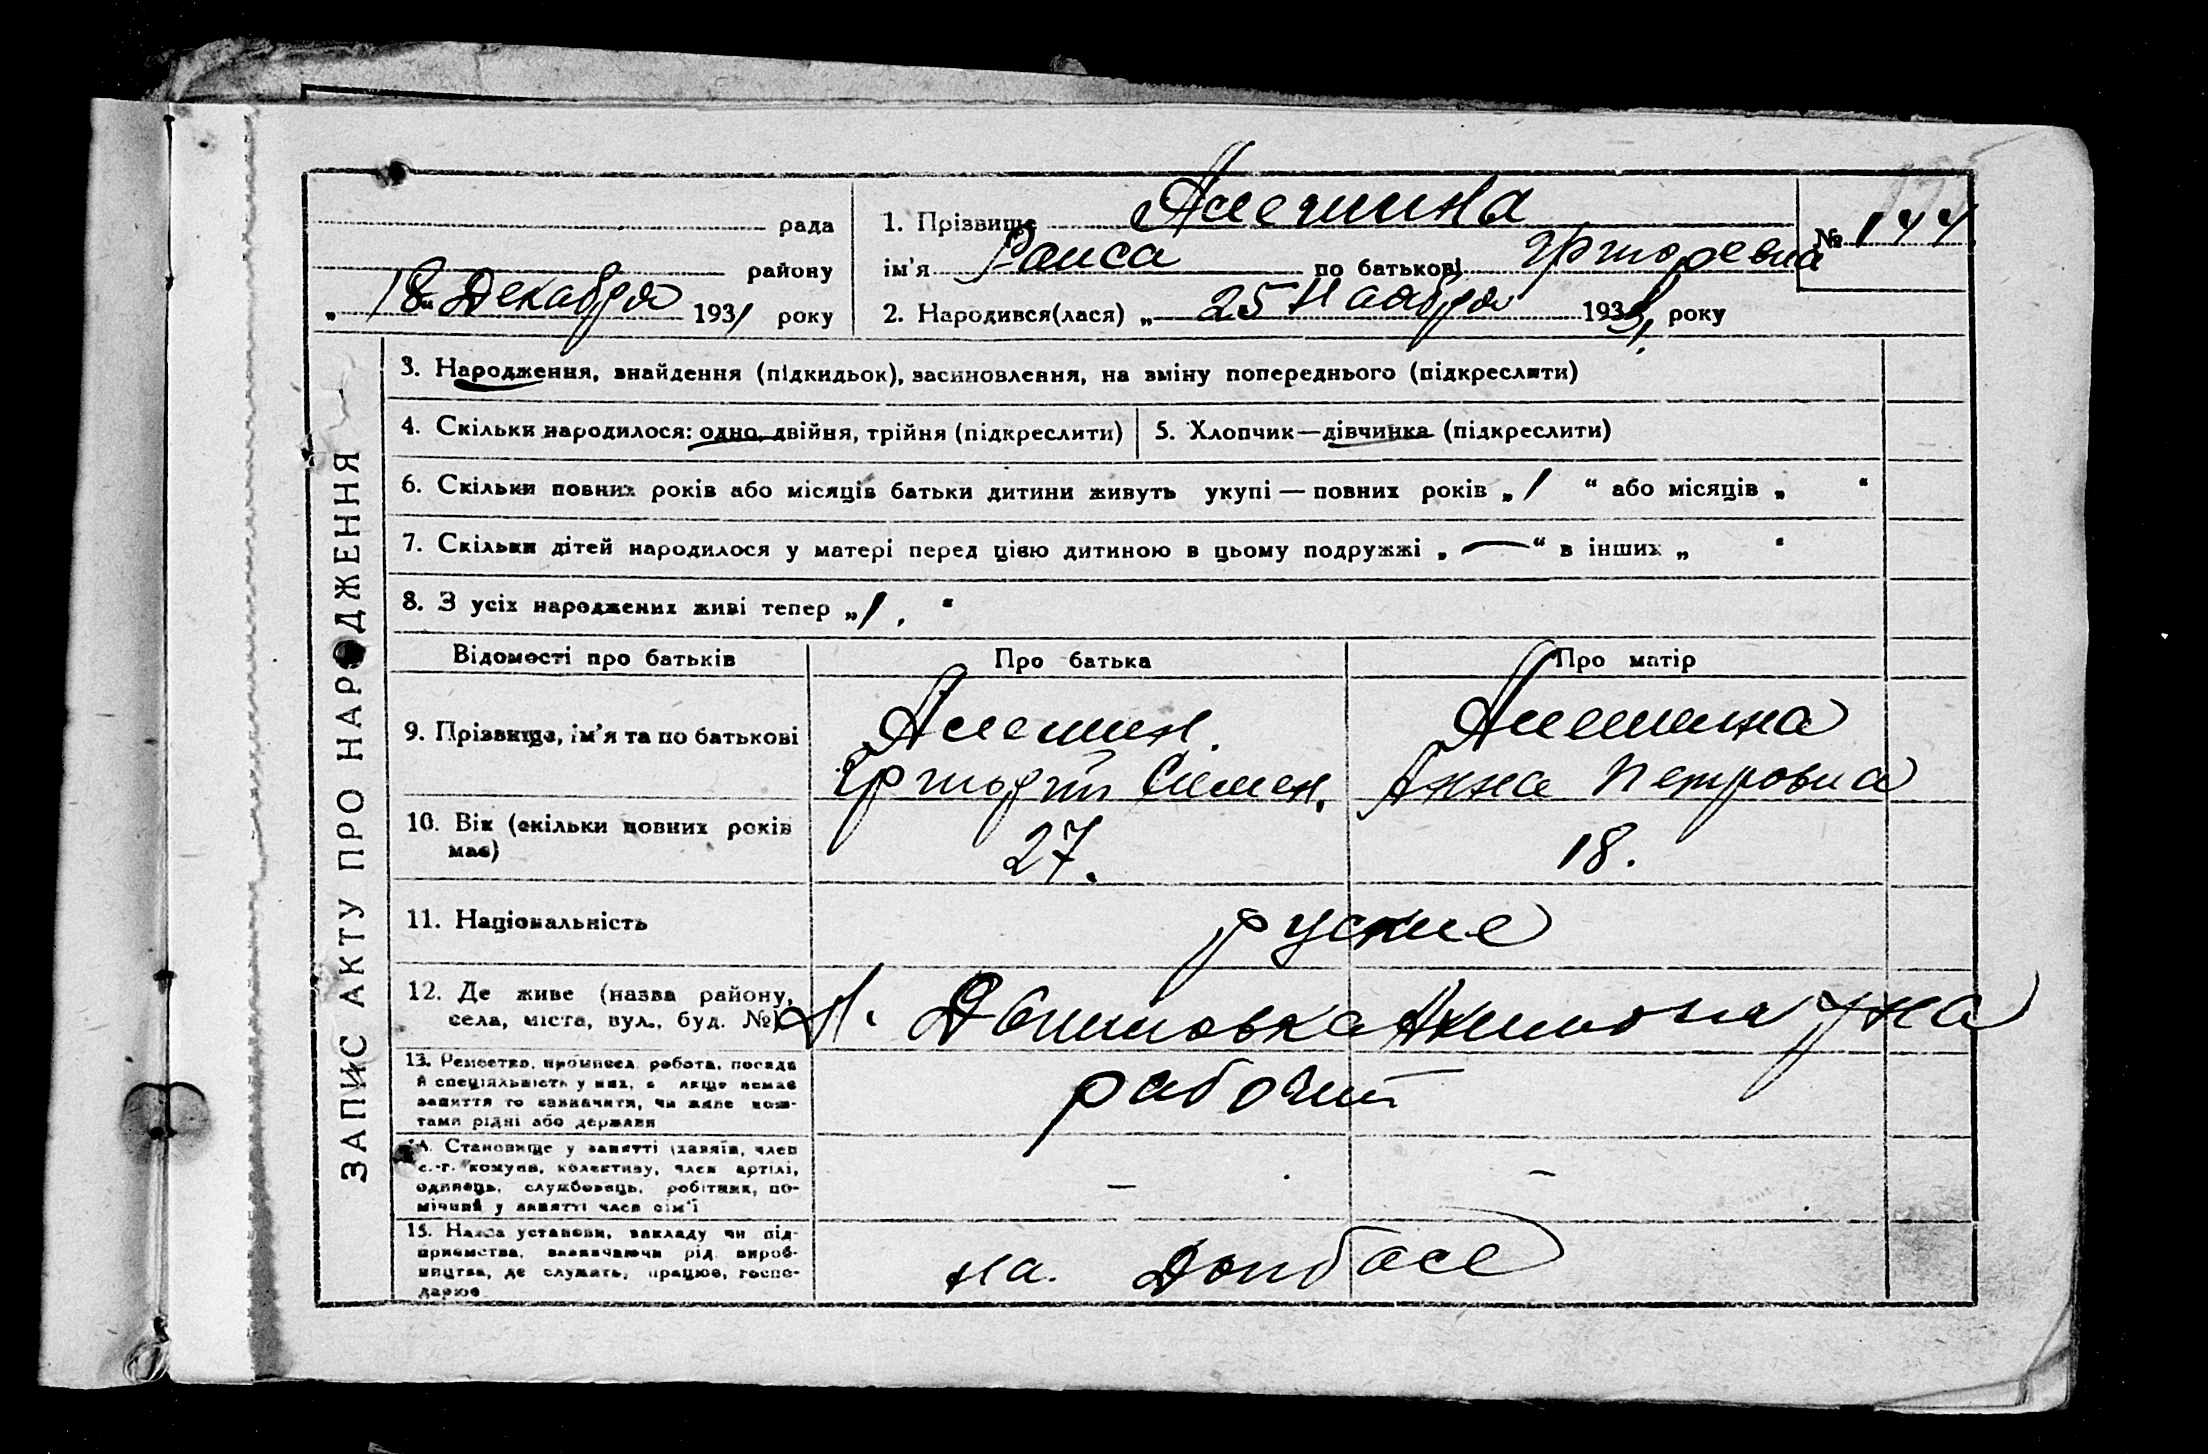 Алешина
рада
1. Прізвище
№ 144
району
ім'я Раиса по батькові Григорьевна
„ 18 " Декабря 1931 року
2. Народився(лася) „ 25 Ноября 1931 року
3. Народження, знайдення (підкидьок), засиновлення, на зміну попереднього (підкреслити)
4. Скільки народилося: одно, двійня, трійня (підкреслити)
5. Хлопчик—дівчинка (підкреслити)
6. Скільки повних років або місяців батьки дитини живуть укупі — повних років „ 1 “ або місяців „ “
7. Скільки дітей народилося у матері перед цією дитиною в цьому подружжі „ — “ в інших „ “
8. З усіх народжених живі тепер „ 1. “
Відомості про батьків
Про батька
Про матір
9. Прізвище, ім'я та по батькові
Алешин.
Григорий Симен.
Алешина
Анна Петровна
10. Вік (скільки повних років
має)
27.
18.
11. Національність
руские
12. Де живе (назва району,
села, міста, вул., буд. №)
13. Ремество, промисел, робота, посада
й спеціяльність у них, а якщо немає
заняття то зазначити, чи живе кош-
тами рідні або держави
рабочий
14. Становище у занятті (хазяїн, член
с.-г. комуни, колективу, член артілі,
одинець, службовець, робітник, по-
мічний у занятті член сім'ї
–
–
15. Назва установи, закладу чи під-
приємства, зазначаючи рід вироб-
ництва, де служить, працює, госпо-
дарює
на. Донбасе
ЗАПИС АКТУ ПРО НАРОДЖЕННЯ